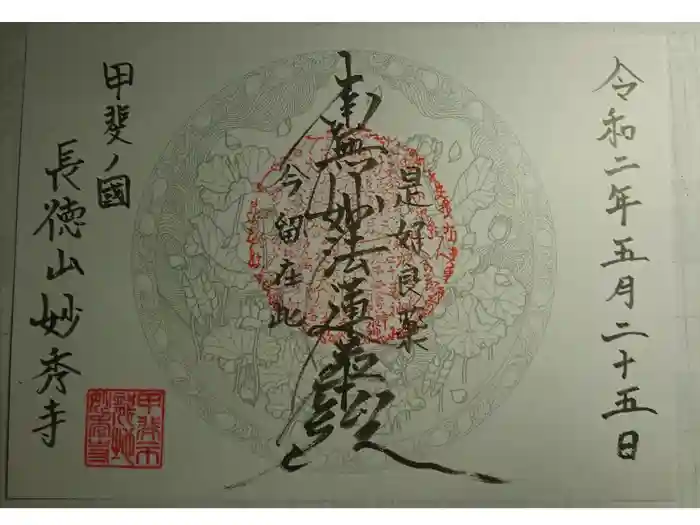 令和二年五月二十五日
是好良薬
南無妙法蓮華経
今留在此
甲斐ノ國
長徳山妙秀寺